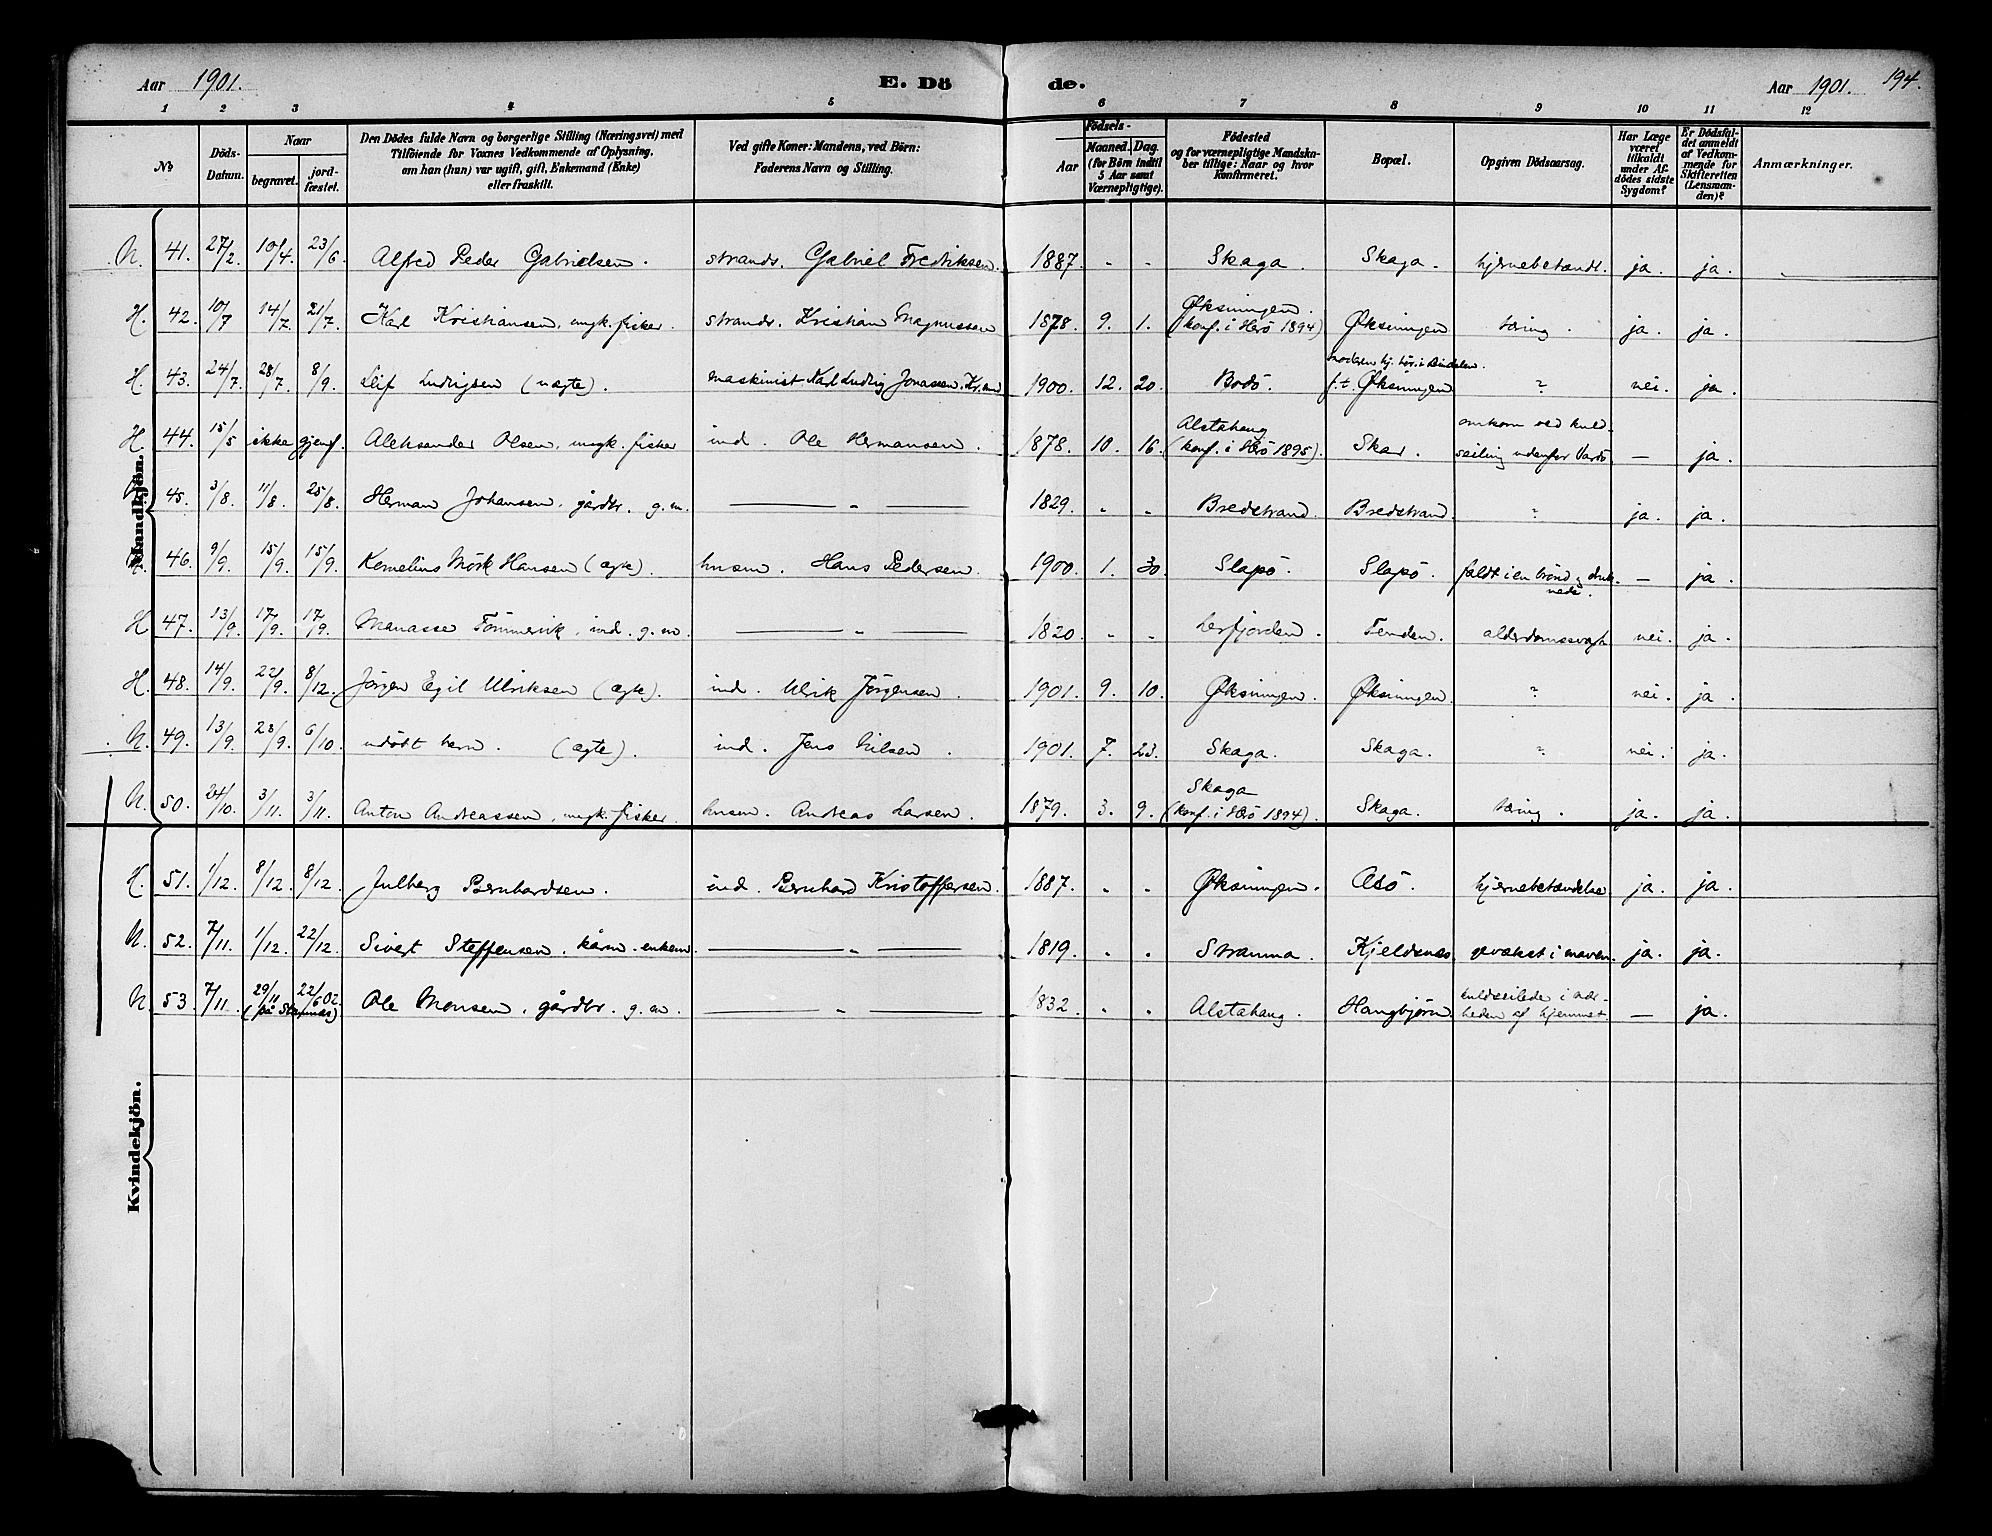 Aar 1901. E. Dö de. Aar 1901. 194.
1 2 3 4 5 6 7 8 9 10 11 12
No
Döds-Datum.
Naar
begravet.
jord-fæstet.
Den Dödes fulde Navn og borgerlige Stilling (Næringsvei) med
Tilföiende for Voxnes Vedkommende af Oplysning,
om han (hun) var ugift, gift, Enkemand (Enke)
eller fraskilt.
Ved gifte Koner: Mandens, ved Börn:
Faderens Navn og Stilling.
Födsels-
Aar
Maaned. Dag.
(for Börn indtil
5 Aar samt
Værnepligtige).
Födested
og for værnepligtige Mandska-
ber tillige: Naar og hvor
Konfirmeret.
Bopæl.
Opgiven Dödsaarsag.
Har Læge
været
tilkaldt
under Af-
dödes sidste
Sygdom?
Er Dödsfal-
det anmeldt
af Vedkom-
mende for
Skifteretten
(Lensman-
den)?
Anmærkninger.
Mandkjön.
N. 41. 27/2 10/4. 23/6 Alfred Peder Gabrielsen. strands. Gabriel Fredriksen. 1887. " " Skaga. Skaga. hjernebetændt. ja. ja.
H. 42. 10/7 14/7. 21/7. Karl Kristiansen, ungk. fisker. strands. Kristian Magnussen 1878. 9. 1. Øksningen. (konf. i Herö 1894) Øksningen tæring. ja. ja.
H. 43. 24/7. 28/7. 8/9. Leif Ludvigsen (uægte). maskinist Karl Ludvig Jonassen, 1900. 12. 20. Bodö. f.t. Øksningen ? nei. ja.
H. 44. 15/5 ikke gjenf. Aleksander Olsen, ungk. fisker ind. Ole Hermansen. 1878. 10. 16. Alstahaug (konf. i Herö 1895). Skar. omkom ved kuld-
seiling udenfor Vardö. — ja.
45. 3/8. 11/8. 25/8. Herman Johansen, gårdbr. g. m. — " — 1829. " " Bredstrand. Bredstrand. ? ja. ja.
46. 9/9. 15/9. 15/9. Kornelius Mörk Hansen (ægte). husm. Hans Pedersen. 1900. 1. 30. Slapö. Slapö. faldt i en brönd — ja.
H 47. 13/9. 17/9. 17/9. Manasse Tömmervik, ind. g. m. — " — 1820. " " Leirfjorden. Tenden. alderdomssvagh. nei. ja.
H. 48. 14/9. 22/9. 8/12. Jörgen Egil Ulriksen (ægte). ind. Ulrik Jörgensen. 1901. 9. 10. Øksningen. Øksningen. ? nei. ja.
N. 49. 13/9. 23/9. 6/10. udöbt barn. (ægte). ind. Jens Nilsen. 1901. 7. 23. Skaga. Skaga. ? nei. ja.
N. 50. 24/10. 3/11. 3/11. Anton Andreassen, ungk. fisker. husm. Andreas Larsen. 1879. 3. 9. Skaga (konf. i Herö 1894). Skaga. tæring. ja. ja.
H. 51. 1/12. 8/12. 8/12. Julberg Bernhardsen. ind. Bernhard Kristoffersen. 1887. " " Øksningen. Asö. hjernebetændelse ja. ja.
N. 52. 7/11. 1/12. 22/12. Sivert Steffensen, kårm. enkem. — " — 1819. " " Stramma. Kjeldsnes. i maven. ja. ja.
N. 53. 7/11. 29/11 22/6 02. Ole Monsen, gårdbr. g. m. — " — 1832. " " Alstahaug. Haugbjörn kuldseilede i nær-
heden af hjemmet. — ja.
Kvindekjön.